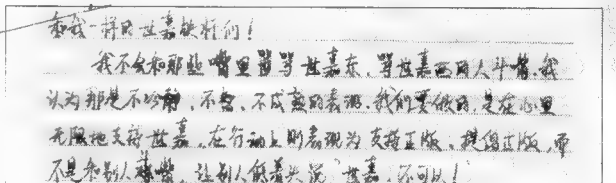 和我一样的世嘉铁杆们！
我不会和那些嘴里骂骂世嘉东、骂世嘉西的人斗嘴。我
认为那是不冷静、不智、不成熟的表现。我们要做的是在心里
无限地支持世嘉，在行动上则表现为支持正版，提倡正版，而
不是和别人斗嘴，让别人低着头说“世嘉，还可以！